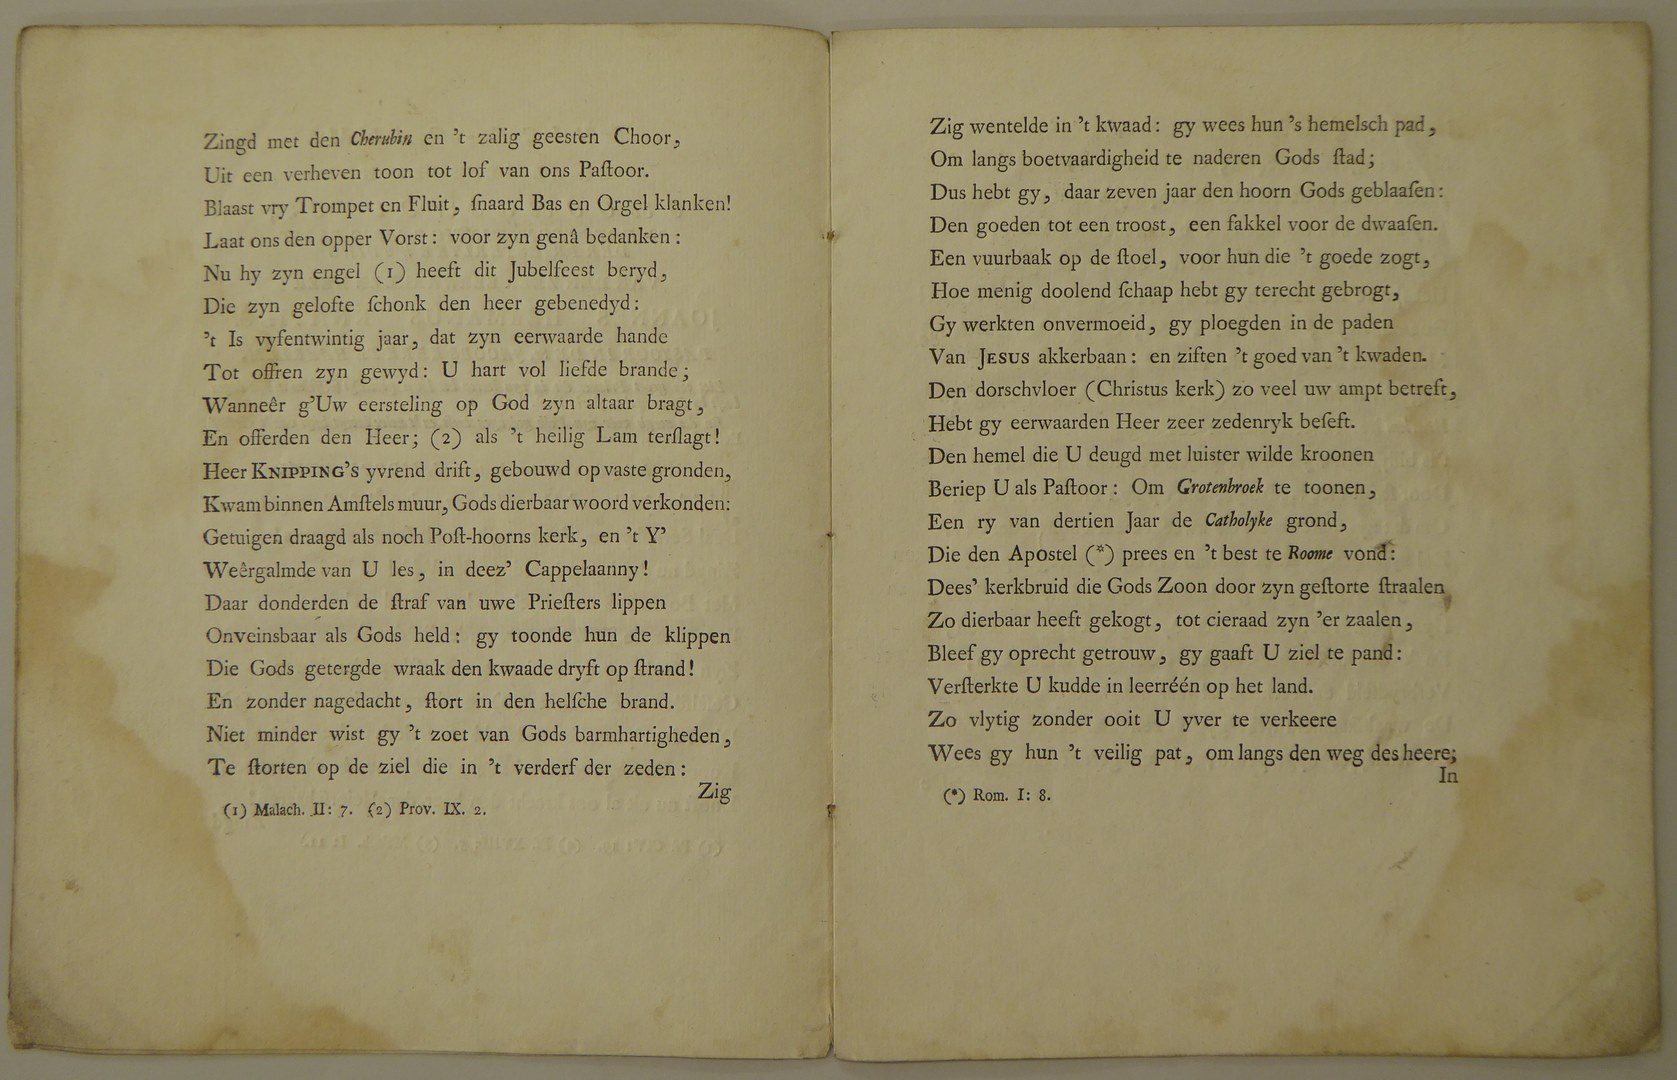 Zingd met den Cherubin en ’t zalig geesten Choor,
Uit een verheven toon tot lof van ons Paſtoor.
Blaast vry Trompet en Fluit, ſnaard Bas en Orgel klanken!
Laat ons den opper Vorst: voor zyn genâ bedanken:
Nu hy zyn engel (1) heeft dit Jubelfeest beryd,
Die zyn gelofte ſchonk den heer gebenedyd:
’t Is vyfentwintig jaar, dat zyn eerwaarde hande
Tot offren zyn gewyd: U hart vol liefde brande;
Wanneêr g’Uw eersteling op God zyn altaar bragt,
En offerden den Heer; (2) als ’t heilig Lam terſlagt!
Heer KNIPPING’S yvrend drift, gebouwd op vaste gronden,
Kwam binnen Amſtels muur, Gods dierbaar woord verkonden:
Getuigen draagd als noch Poſt-hoorns kerk, en ’t Y’
Weêrgalmde van U les, in deez’ Cappelaanny!
Daar donderden de ſtraf van uwe Prieſters lippen
Onveinsbaar als Gods held: gy toonde hun de klippen
Die Gods getergde wraak den kwaade dryft op ſtrand!
En zonder nagedacht, ſtort in den helſche brand.
Niet minder wist gy ’t zoet van Gods barmhartigheden,
Te ſtorten op de ziel die in ’t verderf der zeden:
Zig
(1) Malach. II: 7. (2) Prov. IX. 2.
Zig wentelde in ’t kwaad: gy wees hun ’s hemelsch pad,
Om langs boetvaardigheid te naderen Gods ſtad;
Dus hebt gy, daar zeven jaar den hoorn Gods geblaaſen:
Den goeden tot een troost, een fakkel voor de dwaaſen.
Een vuurbaak op de ſtoel, voor hun die ’t goede zogt,
Hoe menig doolend ſchaap hebt gy terecht gebrogt,
Gy werkten onvermoeid, gy ploegden in de paden
Van JESUS akkerbaan: en ziften ’t goed van ’t kwaden.
Den dorschvloer (Christus kerk) zo veel uw ampt betreft,
Hebt gy eerwaarden Heer zeer zedenryk beſeft.
Den hemel die U deugd met luister wilde kroonen
Beriep U als Paſtoor: Om Grotenbroek te toonen,
Een ry van dertien Jaar de Catholyke grond,
Die den Apostel (*) prees en ’t best te Roome vond:
Dees’ kerkbruid die Gods Zoon door zyn geſtorte ſtraalen
Zo dierbaar heeft gekogt, tot cieraad zyn ’er zaalen,
Bleef gy oprecht getrouw, gy gaaft U ziel te pand:
Verſterkte U kudde in leerréén op het land.
Zo vlytig zonder ooit U yver te verkeere
Wees gy hun ’t veilig pat, om langs den weg des heere;
In
(*) Rom. I: 8.